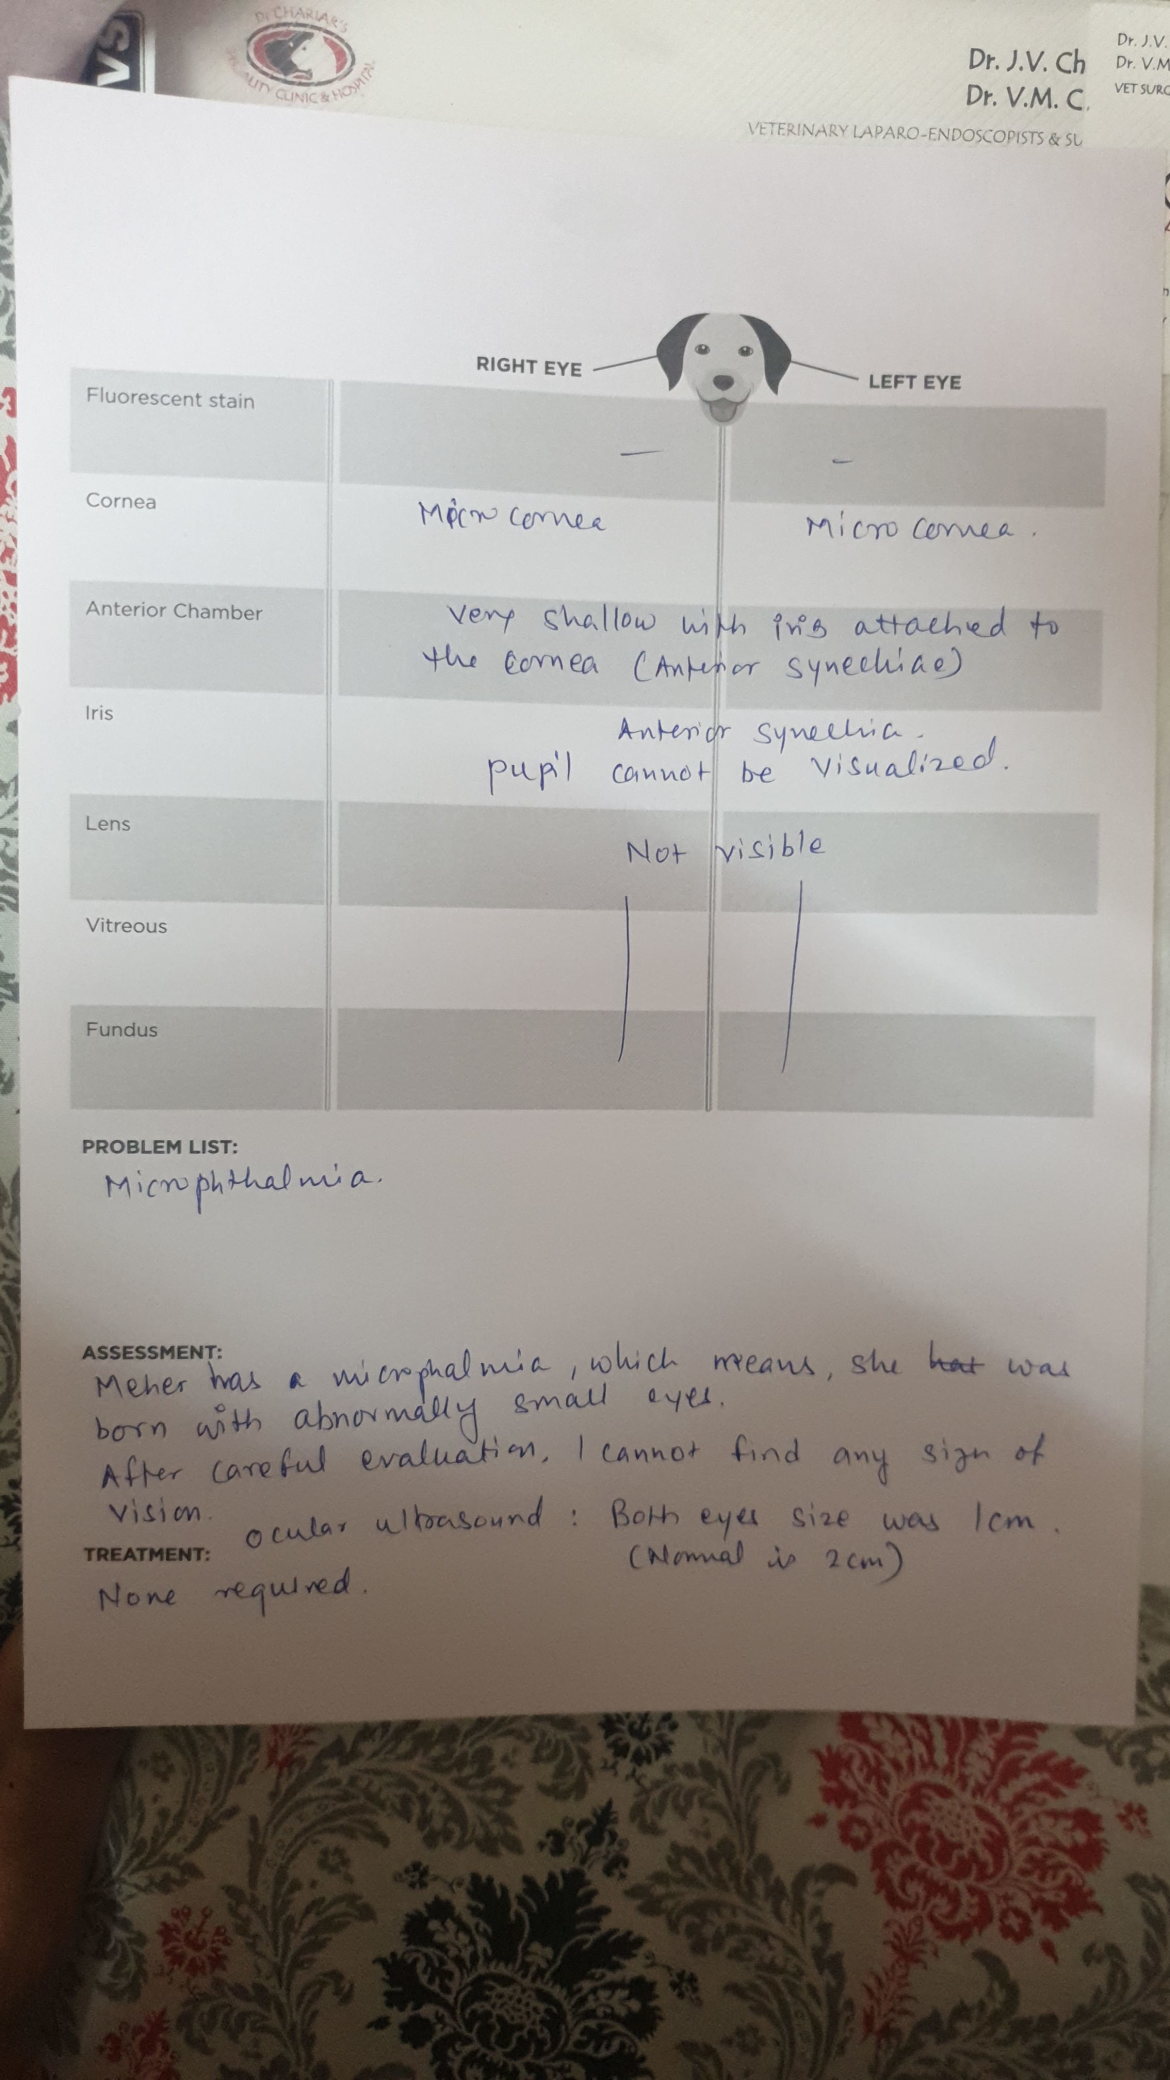 VS
Dr CHARIAR'S
CLINIC & HOSPITAL
Dr. J.V. Ch
Dr. V.M. C.
VETERINARY LAPARO-ENDOSCOPISTS & SU
Dr. J.V.
Dr. V.M
VET SURG
RIGHT EYE
LEFT EYE
Fluorescent stain — -
Cornea Micro cornea Micro cornea.
Anterior Chamber Very shallow with iris attached to
the cornea (Anterior synechiae)
Iris Anterior synechia.
pupil cannot be visualized.
Lens Not visible
Vitreous
Fundus
PROBLEM LIST:
Microphthalmia.
ASSESSMENT:
Meher has a microphalmia, which means, she hat was
born with abnormally small eyes.
After careful evaluation, I cannot find any sign of
vision.
ocular ultrasound : Both eyes size was 1cm.
(Normal is 2cm)
TREATMENT:
None required.